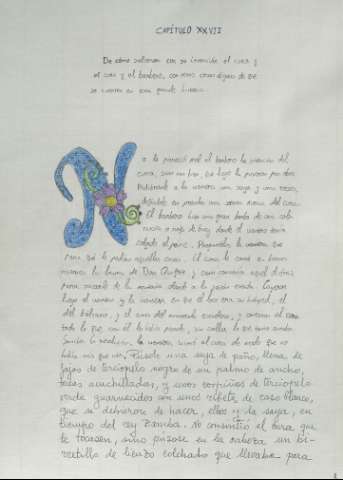 CAPÍTULO XXVII
De cómo salieron con su intención el cura y
el cura y el barbero, con otras cosas dignas de que
se cuenten en esta grande historia.
No le pareció mal al barbero la invención del
cura, sino tan bien, que luego la pusieron por obra.
Pidiéronle a la ventera una saya y unas tocas,
dejándole en prendas una sotana nueva del cura.
El barbero hizo una gran barba de una cola
rucia o roja de buey, donde el ventero tenía
colgado el peine. Preguntóles la ventera que
para qué le pedían aquellas cosas. El cura le contó en breves
razones la locura de Don Quijote y cómo convenía aquel disfraz
para sacarle de la montaña, donde a la sazón estaba. Cayeron
luego el ventero y la ventera en que el loco era su huésped, el
del bálsamo, y el amo del manteado escudero, y contaron al cura
todo lo que con él les había pasado, sin callar lo que tanto callaba
Sancho. En resolución, la ventera vistió al cura de modo que no
había más que ver. Púsole una saya de paño, llena de
fajas de terciopelo negro de un palmo de ancho,
todas acuchilladas, y unos corpiños de terciopelo
verde guarnecidos con unos ribetes de raso blanco,
que se debieron de hacer, ellos y la saya, en
tiempo del rey Bamba. No consintió el cura que
le tocasen, sino púsose en la cabeza un bi-
rretillo de lienzo colchado que llevaba para